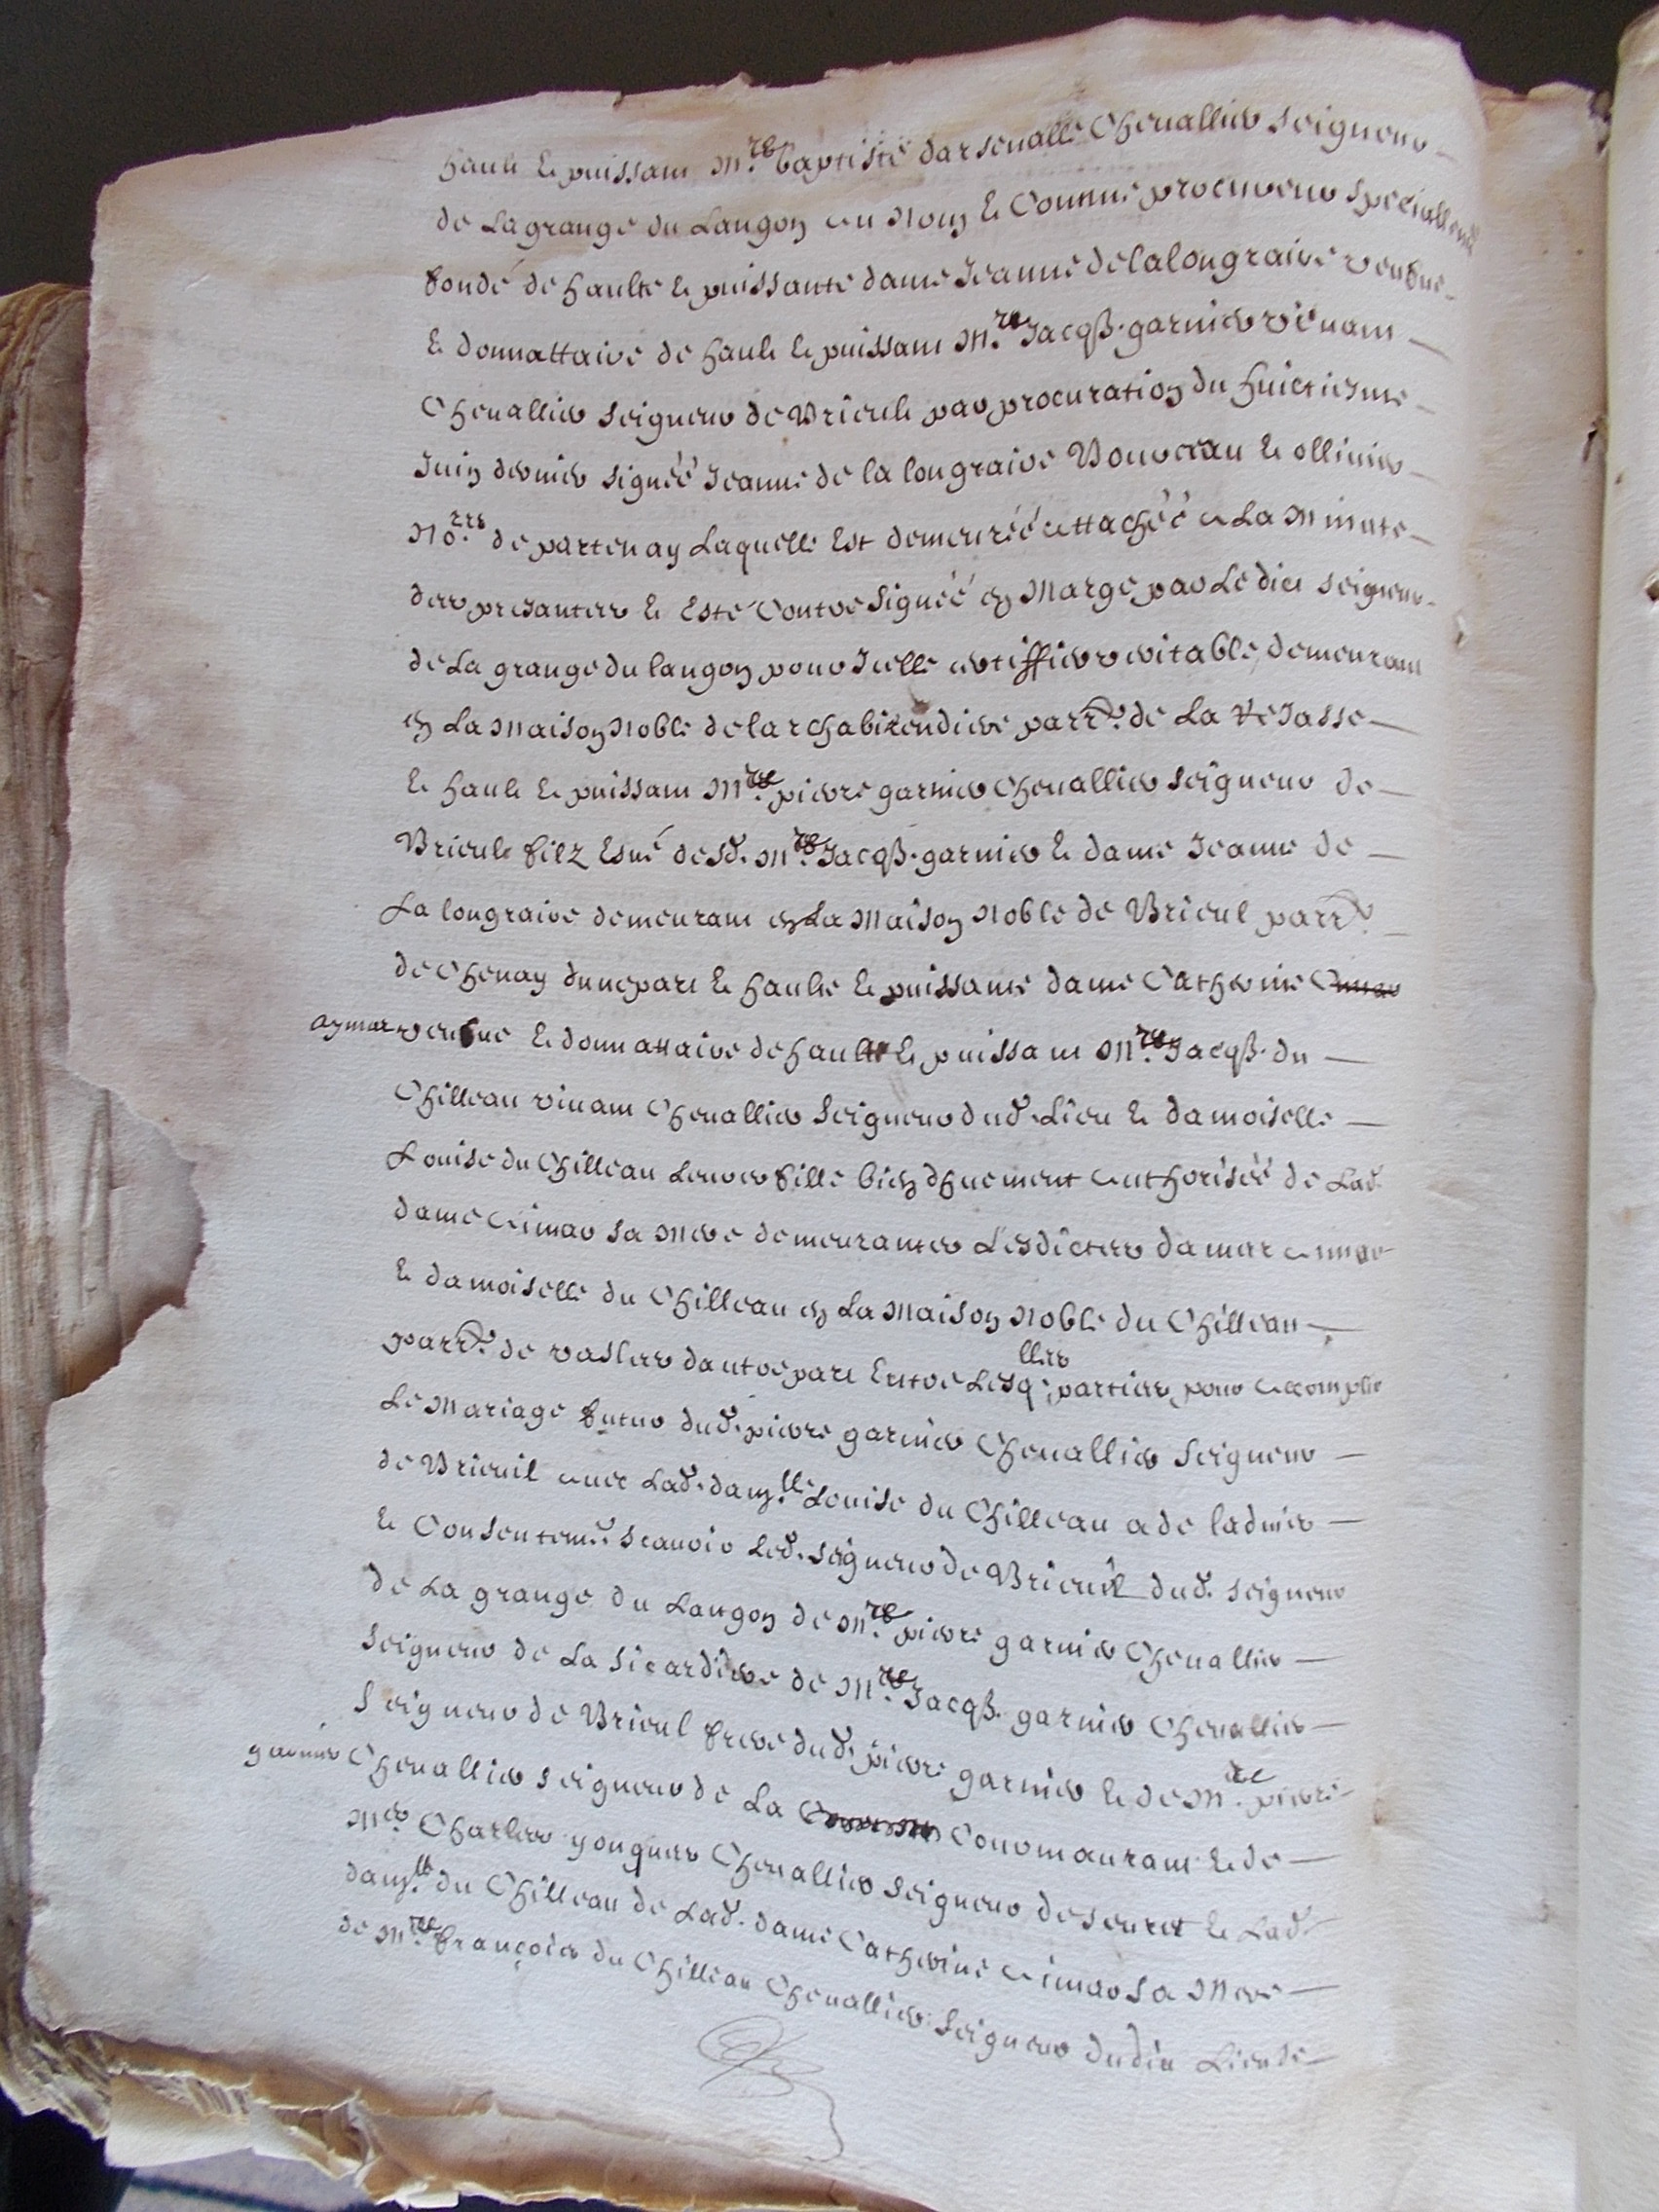 hault & puissant Mre Baptiste darsenalle Chevallier Seigneur
de Lagrange du Langon au Nom & Comme procureur Speciallemt
fondé de haulte & puissante dame Jeanne de la longraire veufve
& donnattaire de hault & puissant Mre Jacqs garnier vivant
Chevallier Seigneur de Brieul par procuration du huictiesme
Juin dernier signéé Jeanne de la longraire & ollivier
Nores de partenay Laquelle Est demeuréé attachéé a La Minute
des presantes & Esté Contre Signéé en Marge par Le dict seigneur
de La grange du langon pour Icelle certiffier veritable, demeurant
en La Maison Noble de la parr. de La
& hault & puissant Mre pierre garnier Chevallier Seigneur de
Brieul filz Esné desd. Mre Jacqs garnier & dame Jeanne de
La longraire demeurant en La Maison Noble de Brieul parr.
de Chenay dune part & haulte & puissante dame Catherine
aymar veufve & donnattaire de hault & puissant Mre Jacqs du
Chilleau vivant Chevallier Seigneur dud. Lieu & damoiselle
Louise du Chilleau Leur fille bien dhuement authoriséé de Lad.
dame aimar sa Mere demeurantes Lesdictes dames aimar
& damoiselle du Chilleau en La Maison Noble du Chilleau
parr. de vasles dautre part Entre Lesqlles parties, pour accomplir
Le Mariage futur dud. pierre garnier Chevallier Seigneur
de Brieuil avec Lad. damlle Louise du Chilleau a de ladvis
& Consentemt. Scavoir Led. Seigneur de Brieuil dud. seigneur
de La grange du Langon de Mre pierre garnier Chevallier
Seigneur de La Sicardiere de Mre Jacqs garnier Chevallier
Seigneur de Brieul frere dud. pierre garnier & de Mre pierre
garnier Chevallier seigneur de La Courmaurant & de
Mre Charles yongues Chevallier Seigneur de Sevret & Lad.
damlle du Chilleau de Lad. dame Catherine aimar Sa Mere
de Mre françois du Chilleau Chevallier Seigneur dudict Lieu de